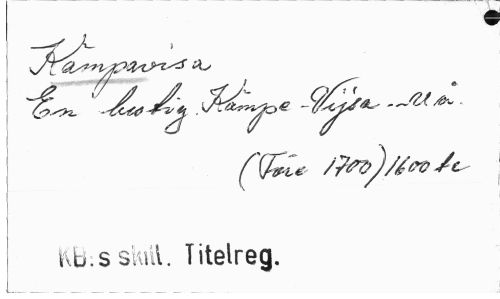 Kämpavisa
En lustig Kämpe-Vijsa. U. å.
(Före 1700) 1600 te
KB:s skill. Titelreg.